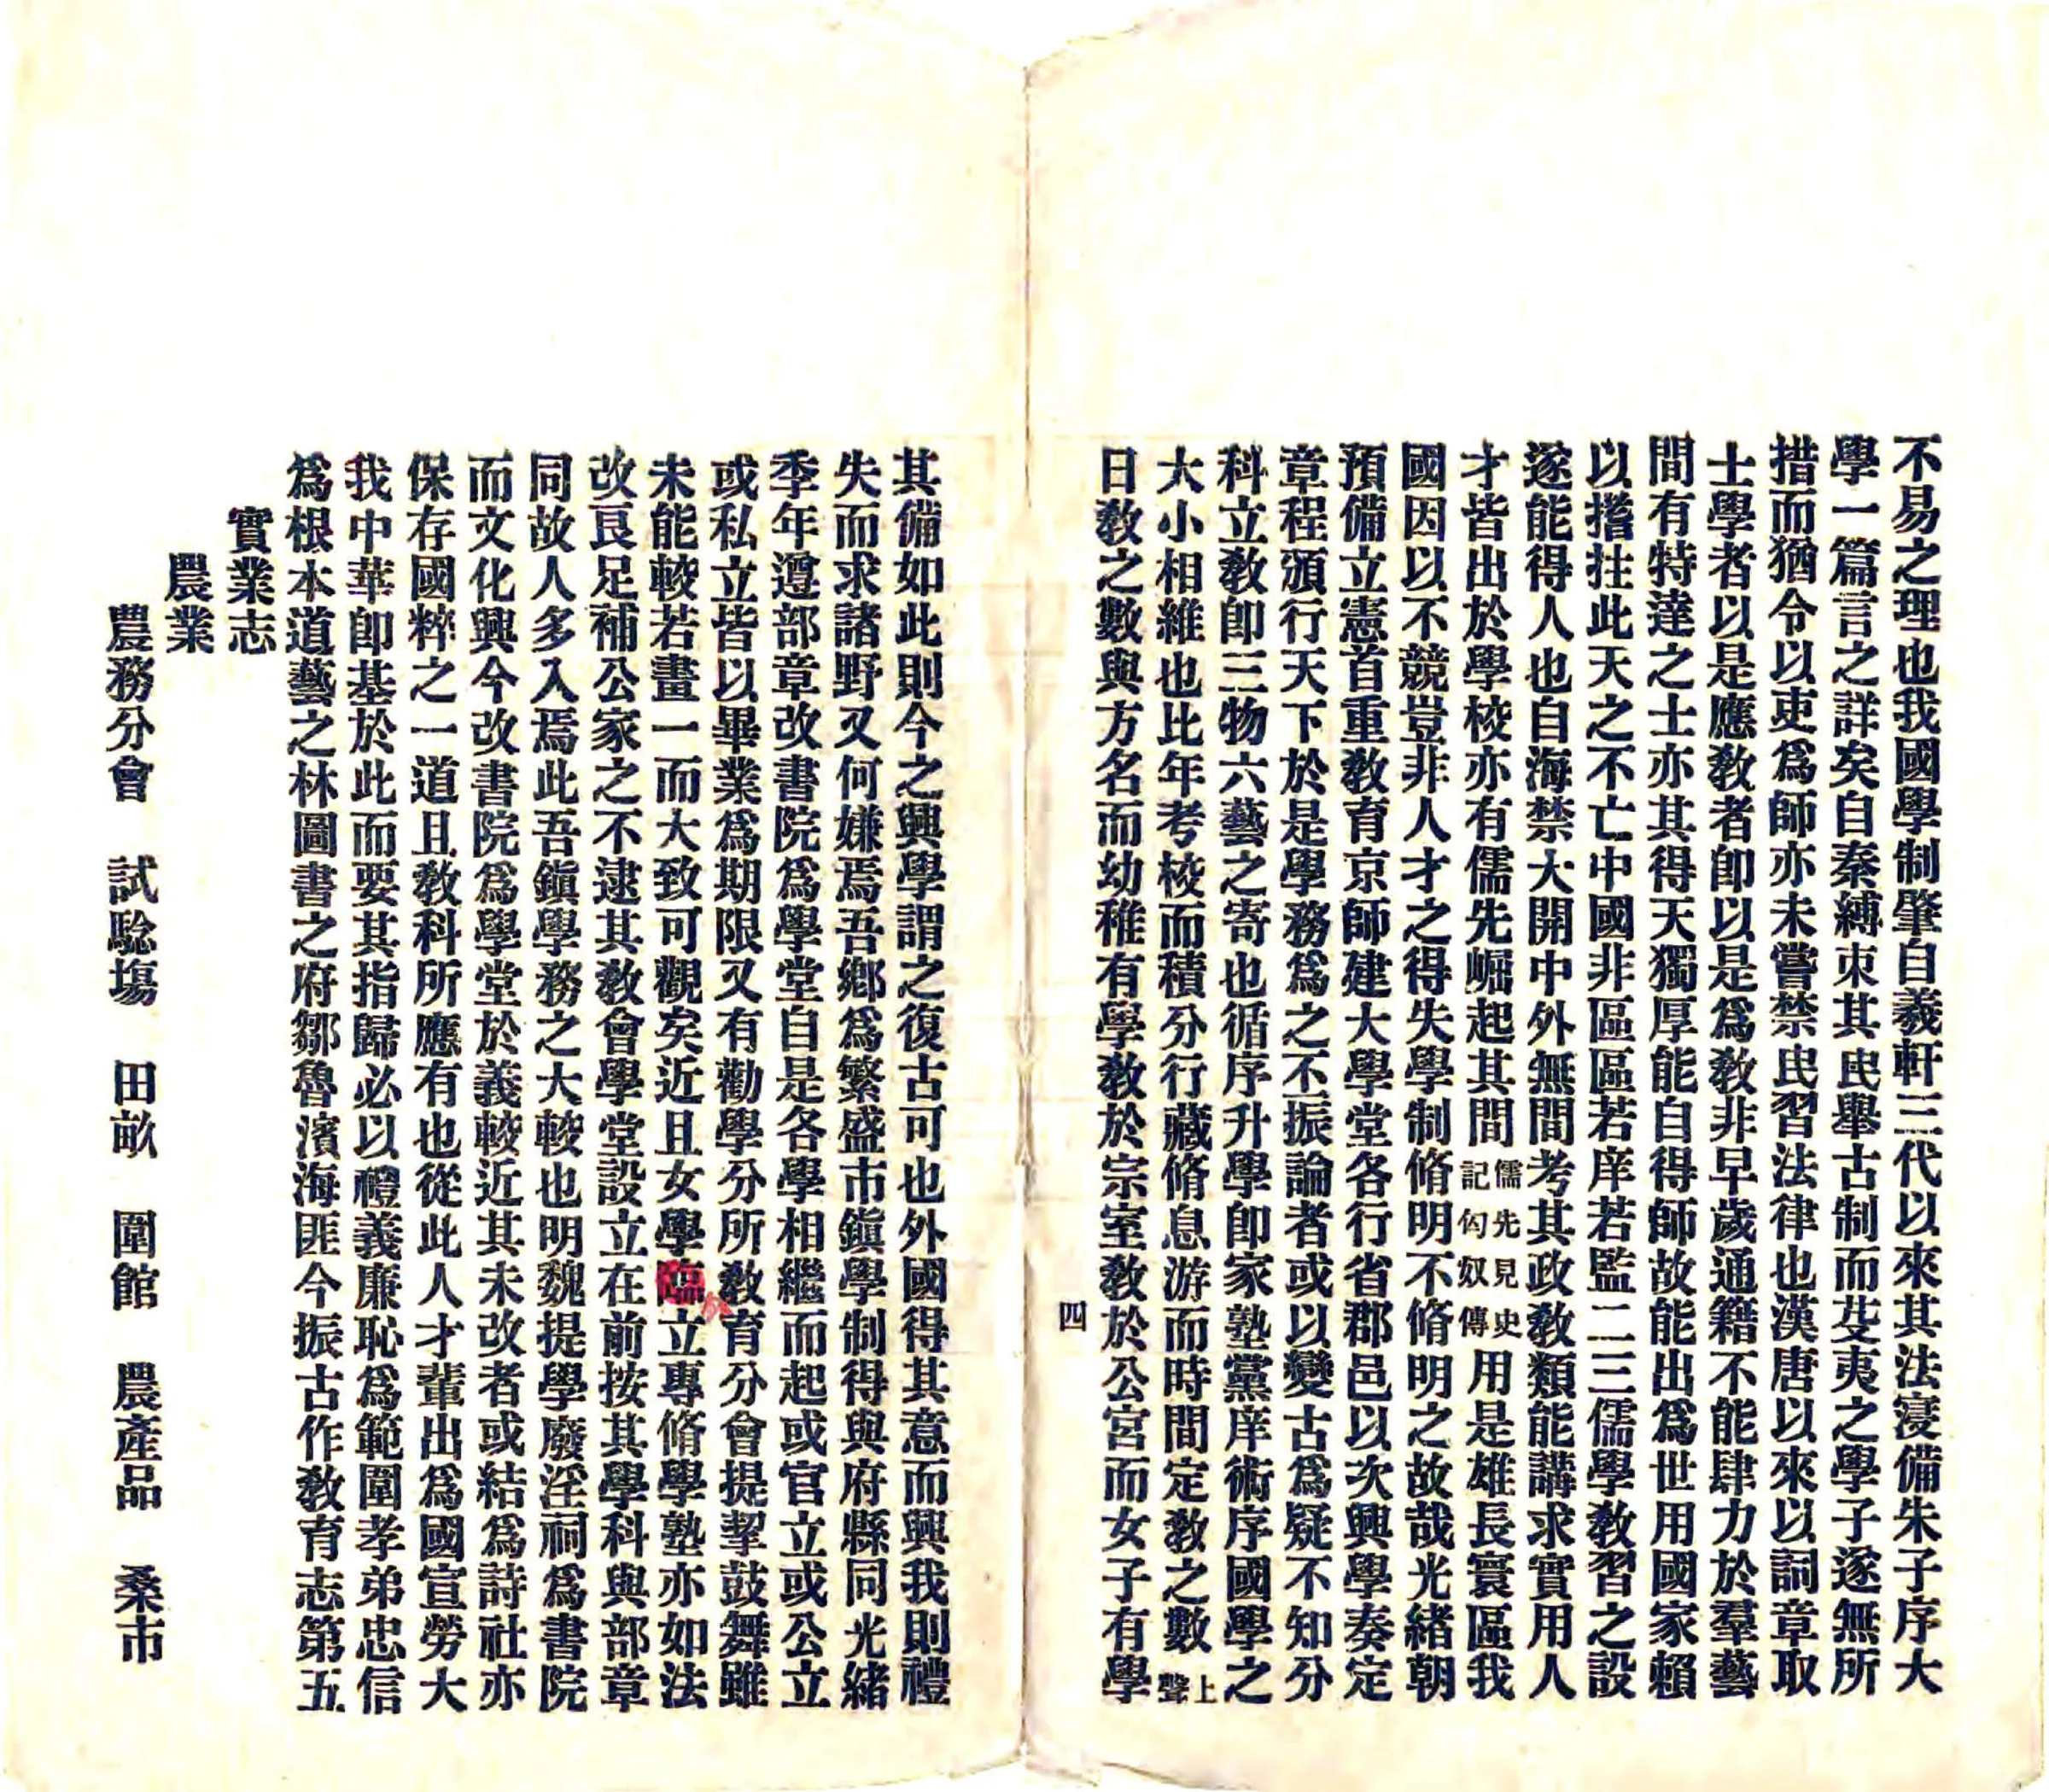 不易之理也我國學制肇自羲軒三代以來其法寖備朱子序大
學一篇言之詳矣自秦縛朿其民舉古制而芟夷之學子遂無所
措而猶令以吏爲師亦未嘗禁民習法律也漢唐以來以詞章取
士學者以是應敎者卽以是爲敎非早歲通籍不能肆力於羣藝
間有特達之士亦其得天獨厚能自得師故能出爲世用國家賴
以搘拄此天之不亡中國非區區若庠若監二三儒學敎習之設
遂能得人也自海禁大開中外無間考其政敎類能講求實用人
才皆出於學校亦有儒先崛起其間儒先見史記匈奴傳用是雄長寰區我
國因以不競豈非人才之得失學制脩明不脩明之故哉光緒朝
預備立憲首重敎育京師建大學堂各行省郡邑以次興學奏定
章程頒行天下於是學務爲之不振論者或以變古爲疑不知分
科立敎卽三物六藝之寄也循序升學卽家塾黨庠術序國學之
大小相維也比年考校而積分行藏脩息游而時間定敎之數上聲
日敎之數與方名而幼稚有學敎於宗室敎於公宮而女子有學
四
其備如此則今之興學謂之復古可也外國得其意而興我則禮
失而求諸野又何嫌焉吾鄉爲繁盛市鎭學制得與府縣同光緒
季年遵部章改書院爲學堂自是各學相繼而起或官立或公立
或私立皆以畢業爲期限又有勸學分所敎育分會提挈鼓舞雖
未能較若畫一而大致可觀矣近且女學臨立專脩學塾亦如法
改良足補公家之不逮其敎會學堂設立在前按其學科與部章
同故人多入焉此吾鎭學務之大較也明魏提學廢淫祠爲書院
而文化興今改書院爲學堂於義較近其未改者或結爲詩社亦
保存國粹之一道且敎科所應有也從此人才輩出爲國宣勞大
我中華卽基於此而要其指歸必以禮義廉恥爲範圍孝弟忠信
爲根本道藝之林圖書之府鄒魯濱海匪今振古作敎育志第五
實業志
農業
農務分會　試驗塲　田畝　圍館　農產品　桑市